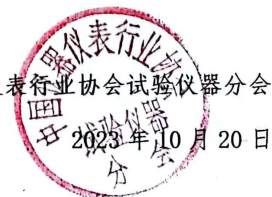 表行业协会试验仪器分会
2023年10月20日
中国仪器仪表行业协会
试验仪器
分会